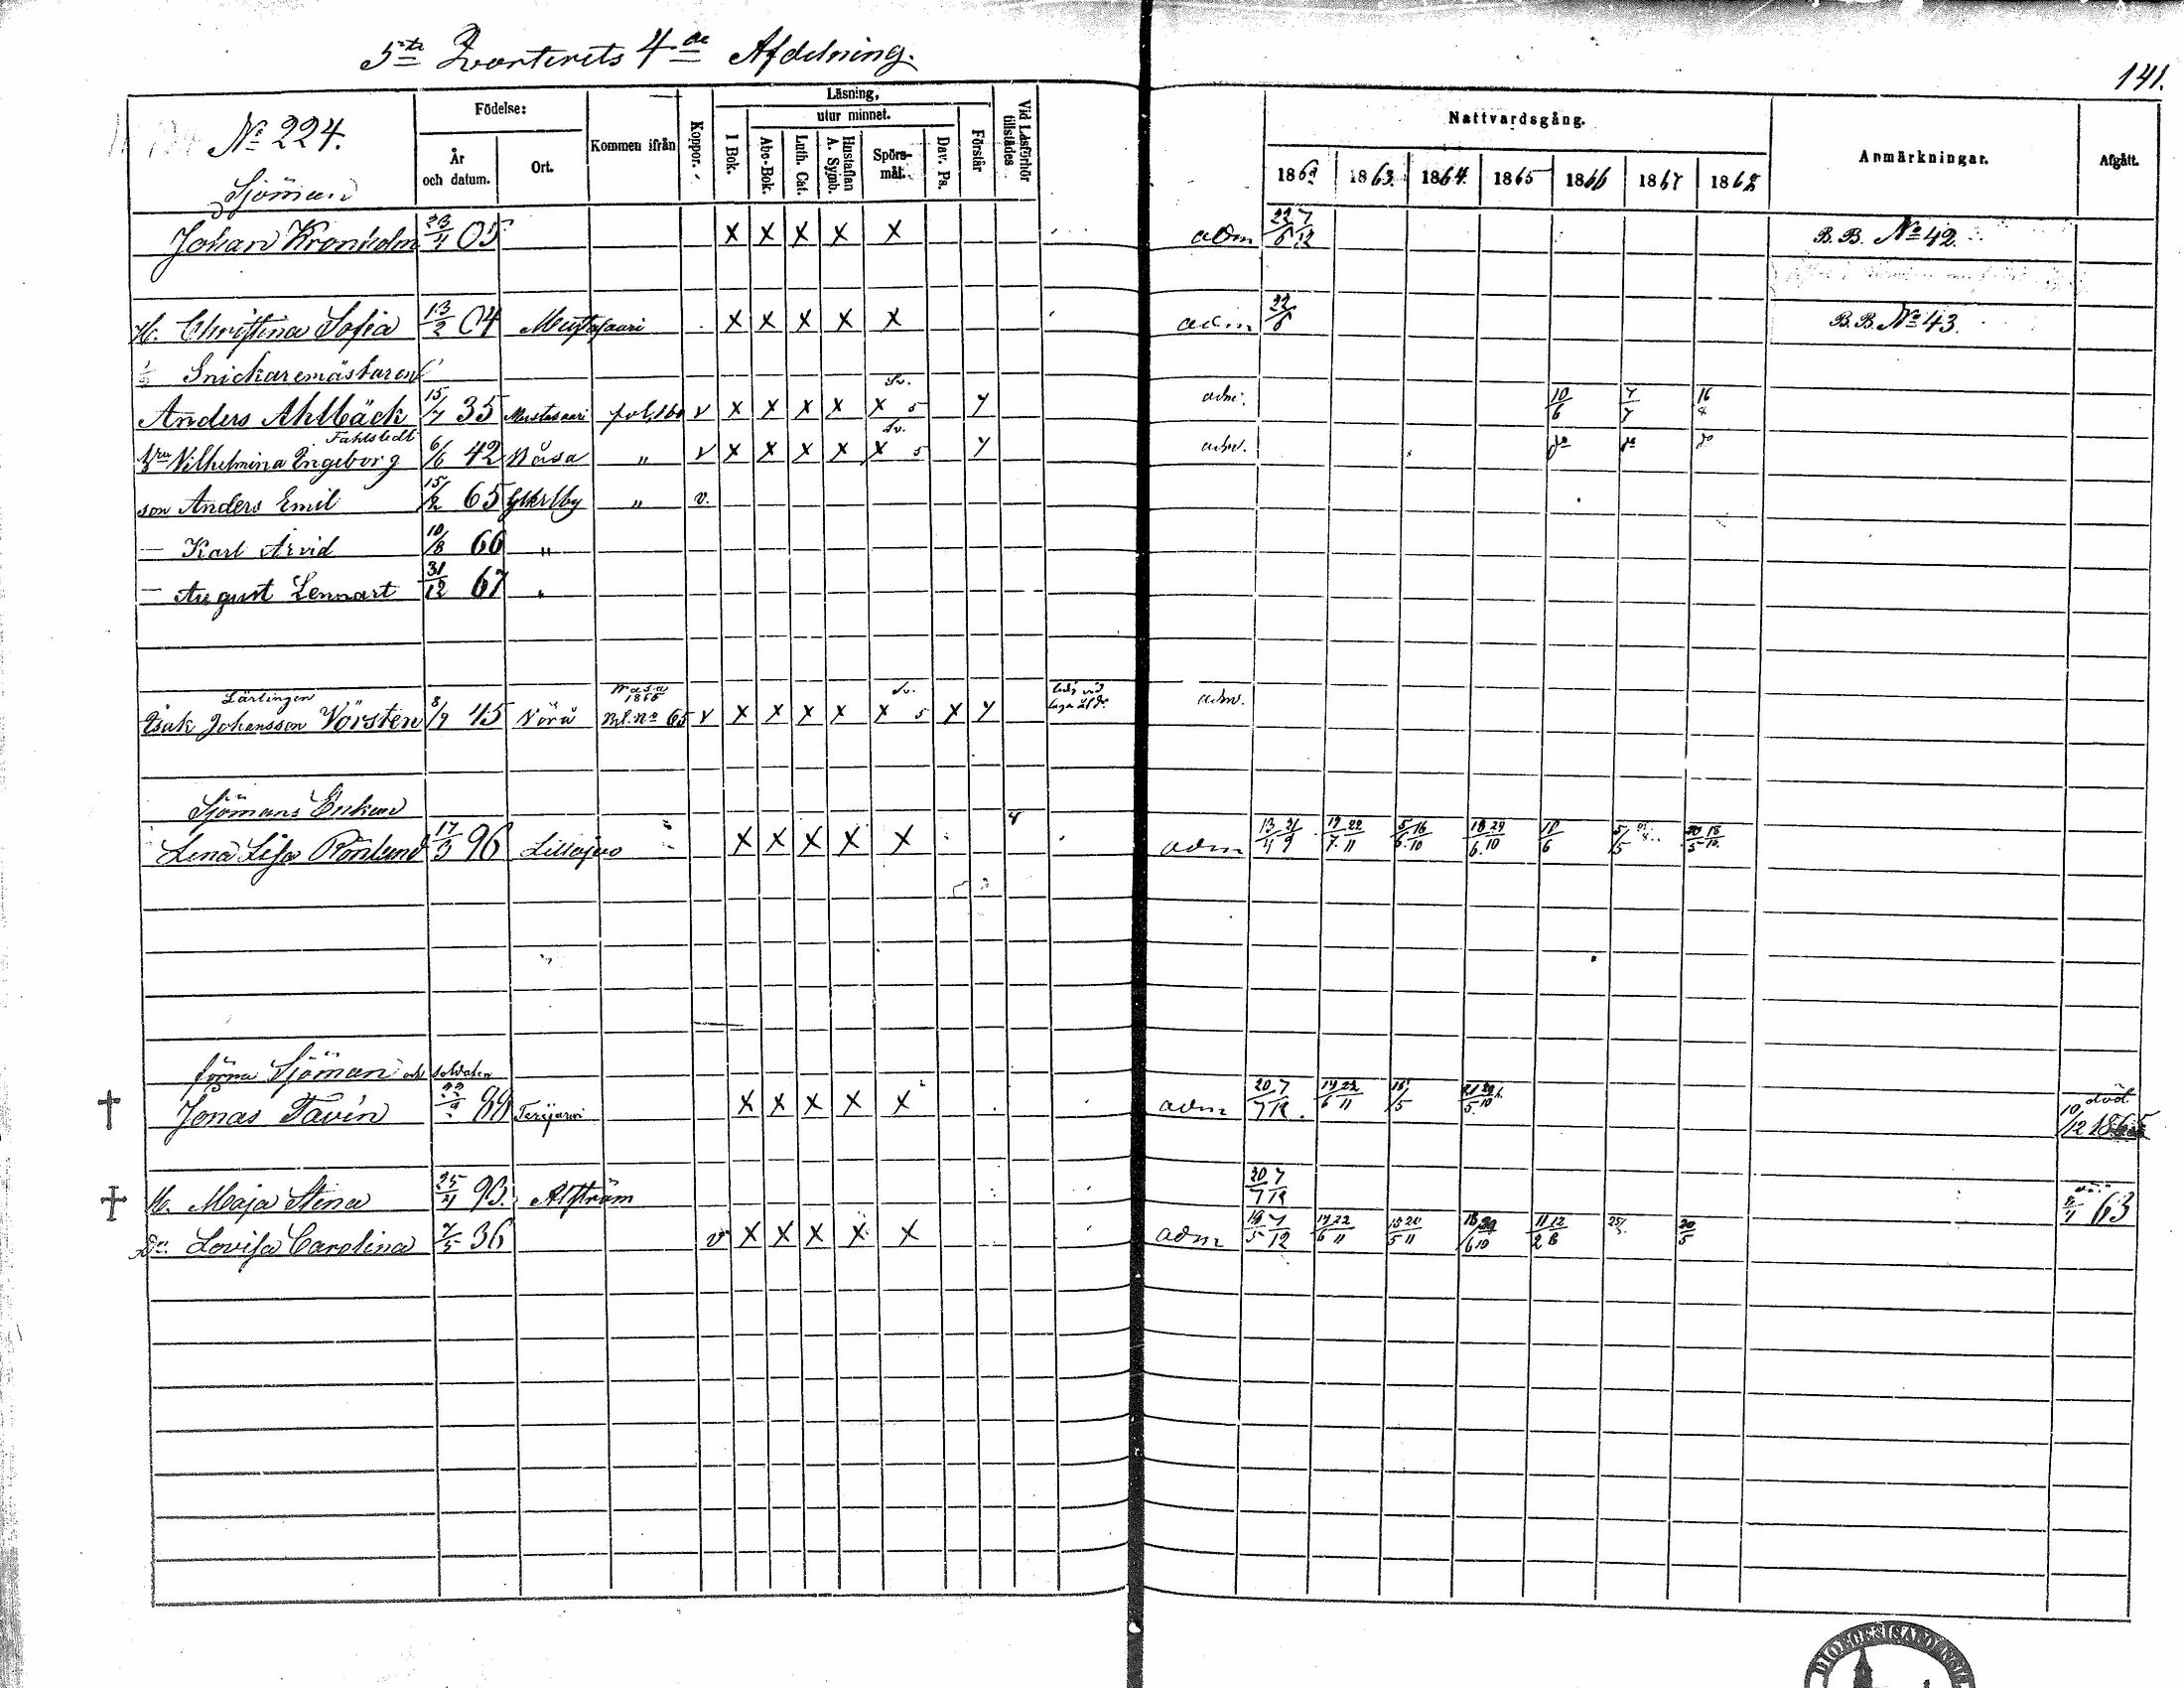 5te Qvarterets 4de Afdelning.
141.
No 224.
Födelse:
År och datum.
Ort.
Kommen ifrån
Koppor.
Läsning,
utur minnet.
I Bok.
Abc-Bok.
Luth. Cat.
Hustaflan A. Symb.
Spörsmål.
Dav. Ps.
Förstår
Vid Läsförhör tillstädes
Nattvardsgång.
1862 1863. 1864. 1865 1866 1867 1868
Anmärkningar.
Afgått.
Sjöman
Johan Kronholm 05 X X X X X adm 22/6 7/12 B.B. No 42.
H. Christina Sofia 13/2 04 Mustasaari X X X X X adm 22/6 B.B. No 43.
Snickaremästaren
Anders Ahlbäck 15/7 35 Mustasaari v X X X X X 5 Y adm. 10/6 7/7
Fahlstedt
Vilhelmina Ingeborg 6/6 42 Wasa " v X X X X X 5 Y adm.
son Anders Emil 15/2 65 Gkrlby " v.
— Karl Arvid 10/8 66 "
— August Lennart 31/12 67 "
Lärlingen
Isak Johansson Vörsten 8/9 45 Vörå Wasa 1866 Bl. no 65 v X X X X X 5 X Y adm.
Sjömans Enkan
Lena Lisa Rönlund 17/3 96 X X X X X adm 13/4 21/9 19/7 22/11 5/6 16/10 18/6 29/10 10/6 5/5 30/5 18/10
förra Sjöman och soldaten
† Jonas Tavin 89 Terijärvi X X X X X adm 20/7 7/12 14/6 22/11 16/5 21/5 död 10/12 1865
† H. Maja Stina 25/4 93. 20/7 7/12 63
Dr. Lovisa Carolina 7/5 36 v X X X X X adm 19/5 7/12 14/6 22/11 15/5 20/11 18/6 11/2 12/6 25/5 30/5